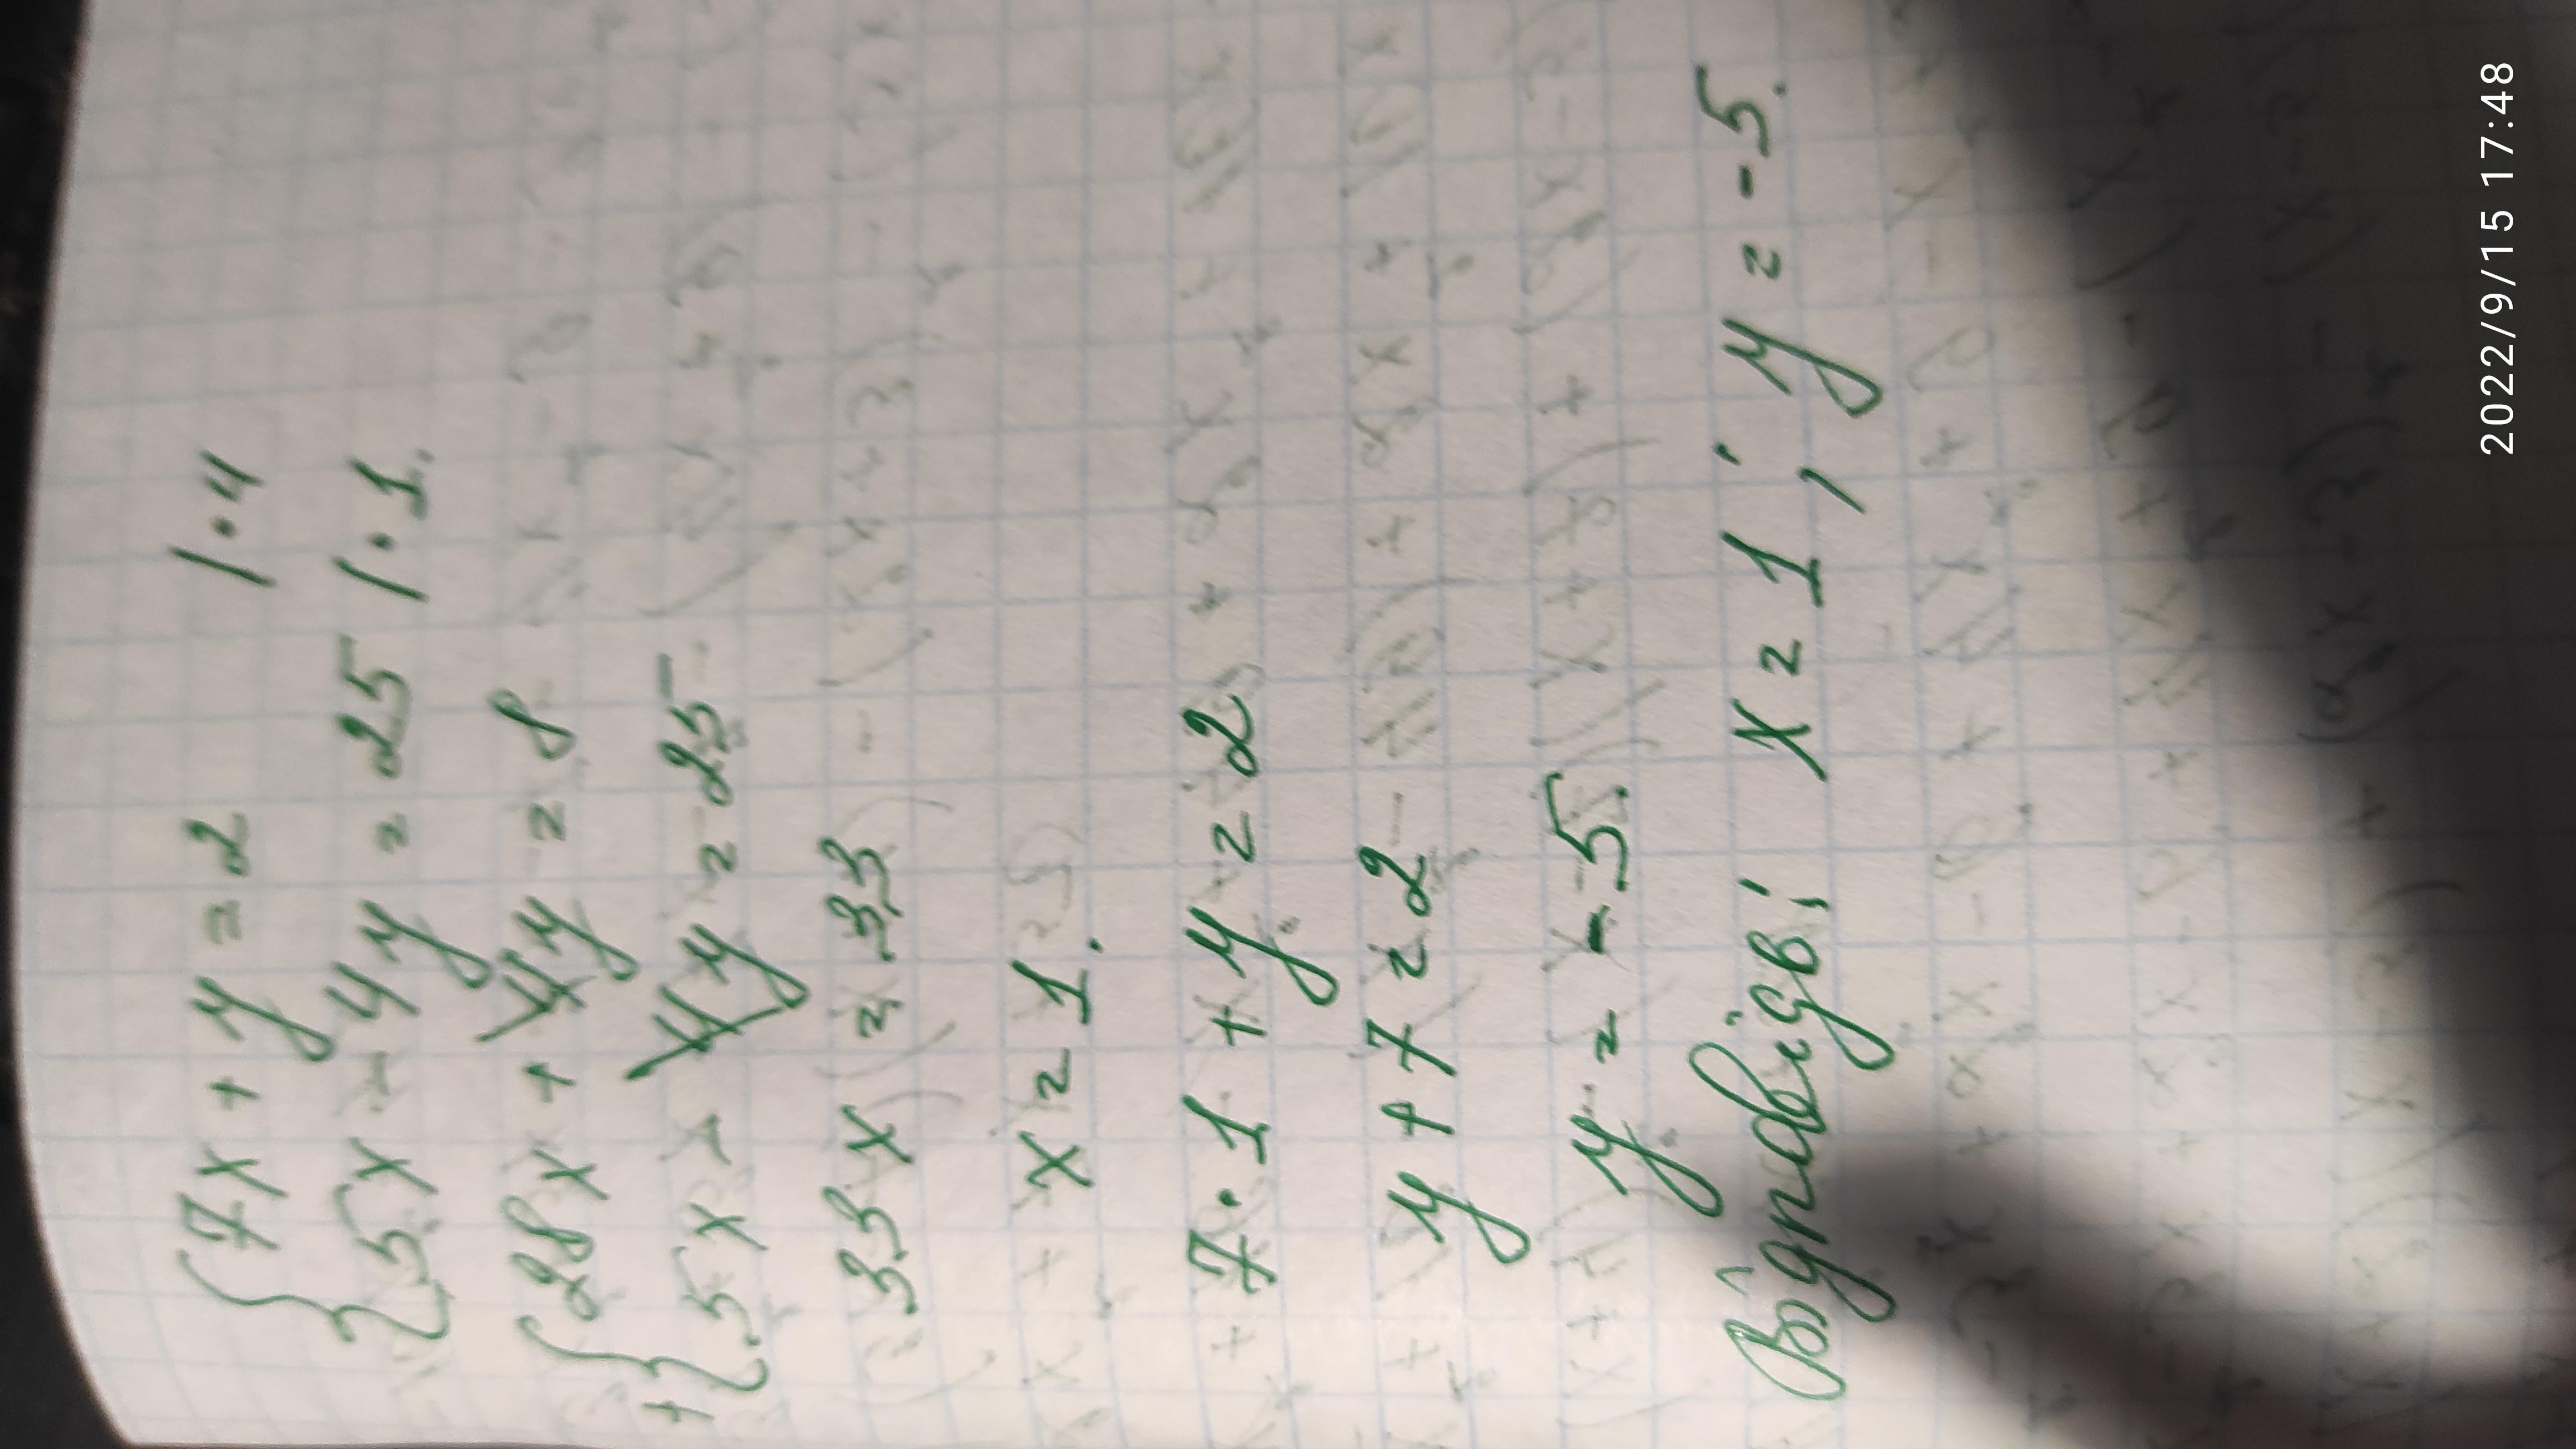 {7x + y = 2 | · 4
{5x - 4y = 25 | · 1.
{28x + 4y = 8
+{5x - 4y = 25
33x = 33
x = 1.
7 · 1 + y = 2
y + 7 = 2
y = -5
Відповіді x = 1; y = -5.
2022/9/15 17:48